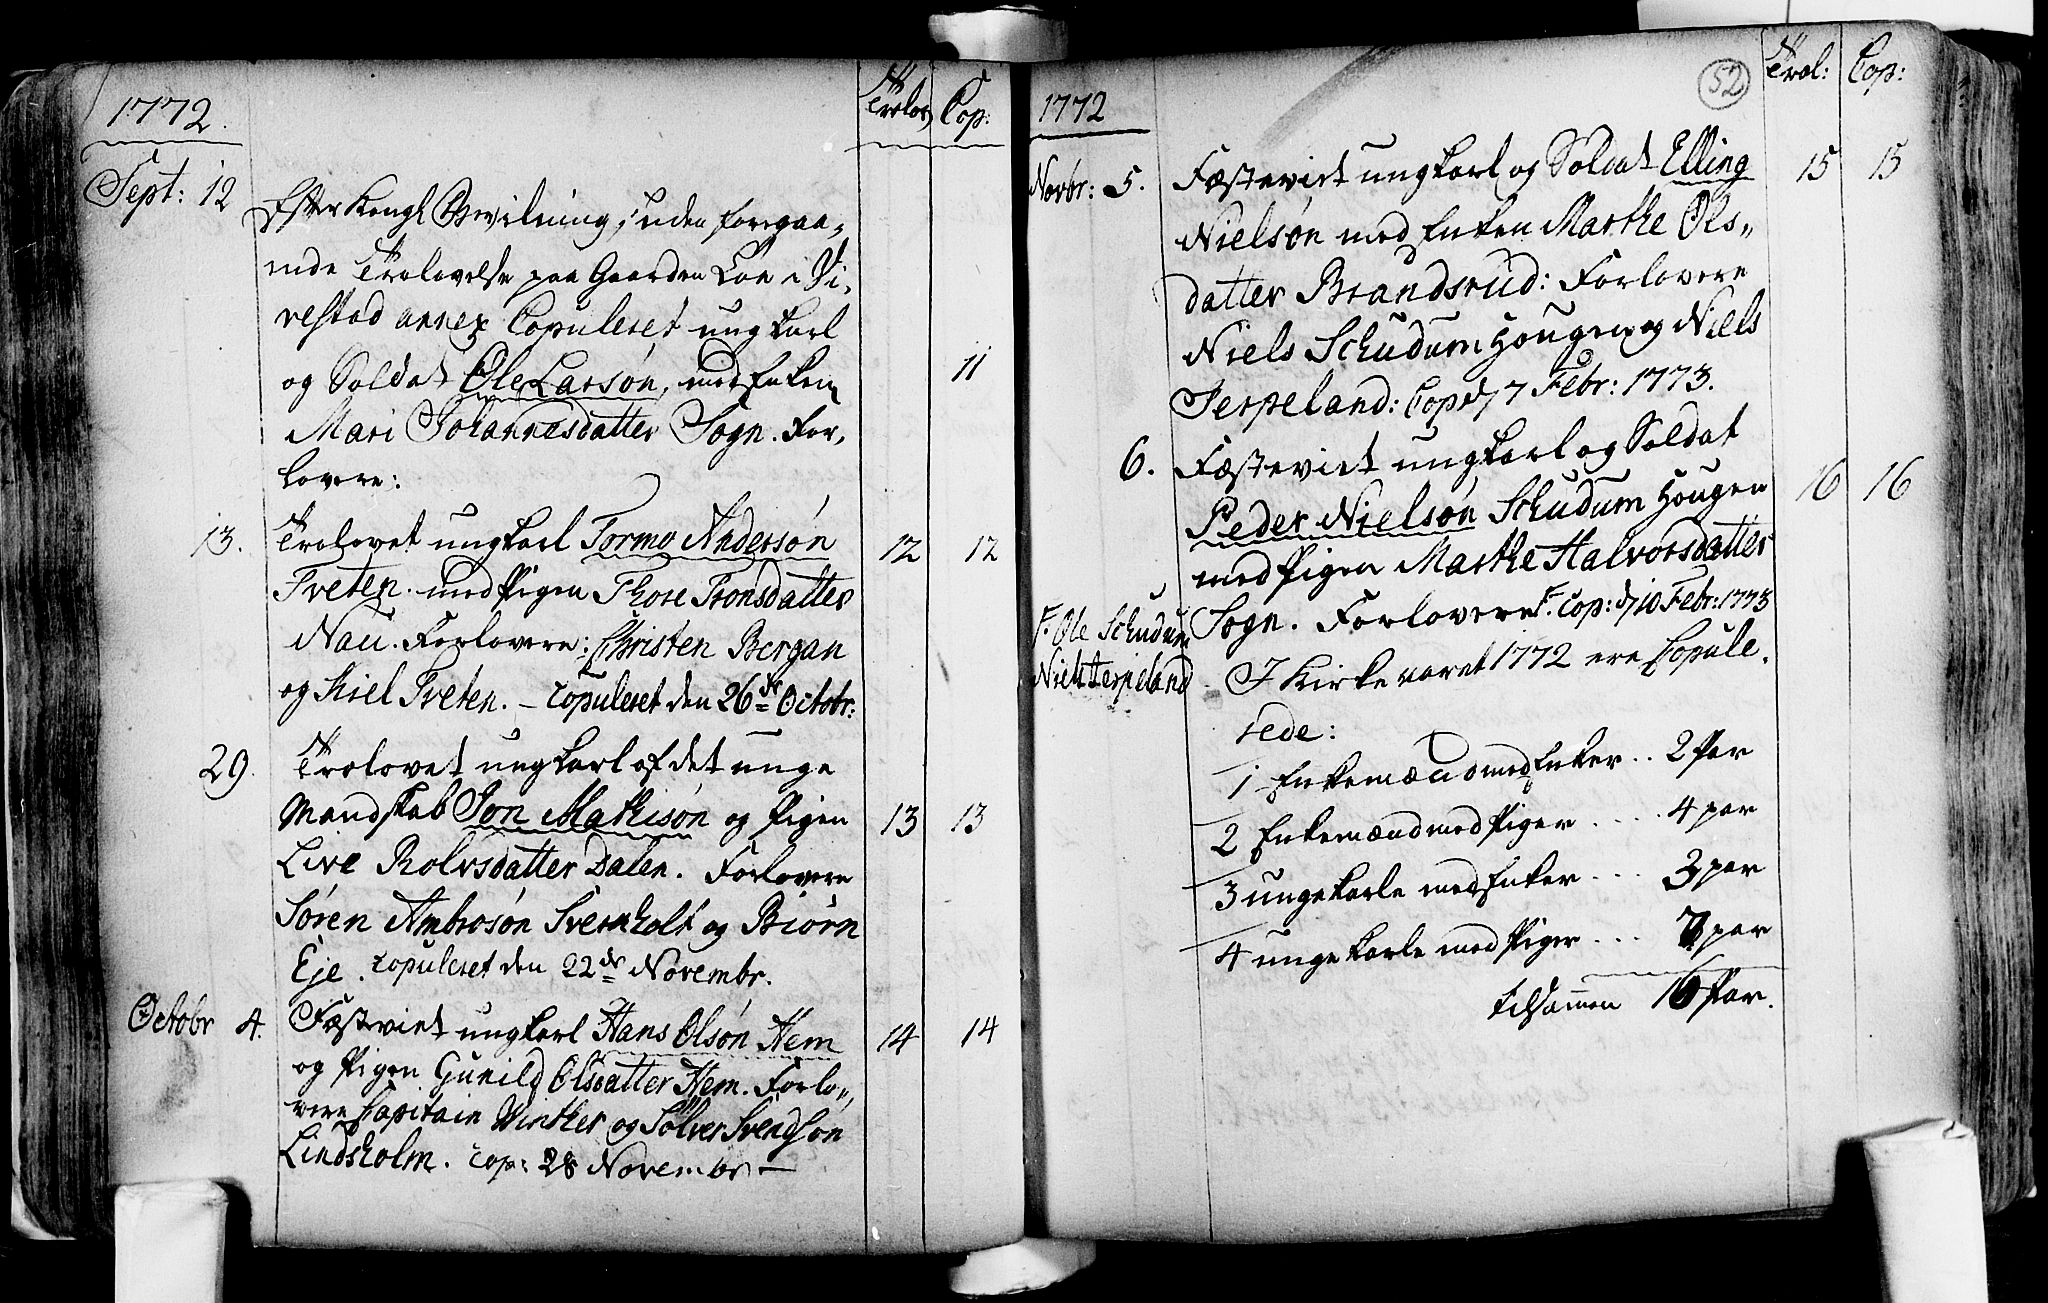 1772.
Trolov: Cop:
Sept: 12 Efter Kongl Bevilning, uden foregaa-
ende Trolovelse paa Gaarden Loe i Vi-
vestad annex Copuleret ungkarl
og Soldat Ole Larsøn, med Enken 11
Mari Johannesdatter Sogn. For-
lovere:
13. Trolovet ungkarl Tormo Andersøn 12 12
Tveten. med Pigen Thore Tronsdatter
Nau. Forlovere: Christen Bergan
og Kiel Tveten. – Copuleret den 26de Octobr:
29. Trolovet ungkarl af det unge
Mandskab Jon Mathisøn og Pigen 13 13
Live Rolvsdatter Dalen. Forlovere
Søren Ambrosøn Svernholt og Biørn
Eje. Copuleret den 22de Novembr.
Octobr 4. Fæsteviet ungkarl Hans Olsøn Hem 14 14
og Pigen Gunild Olsdatter Hem. Forlo-
vere Capitain Winther og Sølver Svendsøn
Lindsholm. Cop: 28 Novembr –
52
1772
Trol: Cop:
Novbr: 5. Fæsteviet ungkarl og Soldat Elling 15 15
Nielsøn med Enken Marthe Ols-
datter Brandsrud: Forlovere
Niels Schudum Hougen og Niels
Jerpeland: Cop: d 7 Febr: 1773.
6. Fæsteviet ungkarl og Soldat
Peder Nielsøn Schudum Hougen 16 16
med Pigen Marthe Halvorsdatter
Sogn. Forlovere F. Cop: d 10 Febr: 1773
F. Ole Schudum
Niels Jerpeland
I Kirke aaret 1772 ere Copule-
rede:
1 Enkemænd med Enker .. 2 Par
2 Enkemænd med Piger .... 4 par
3 unge karle med Enker ... 3 par
4 unge karle med Piger ... 7 par
tilsammen 16 Par.